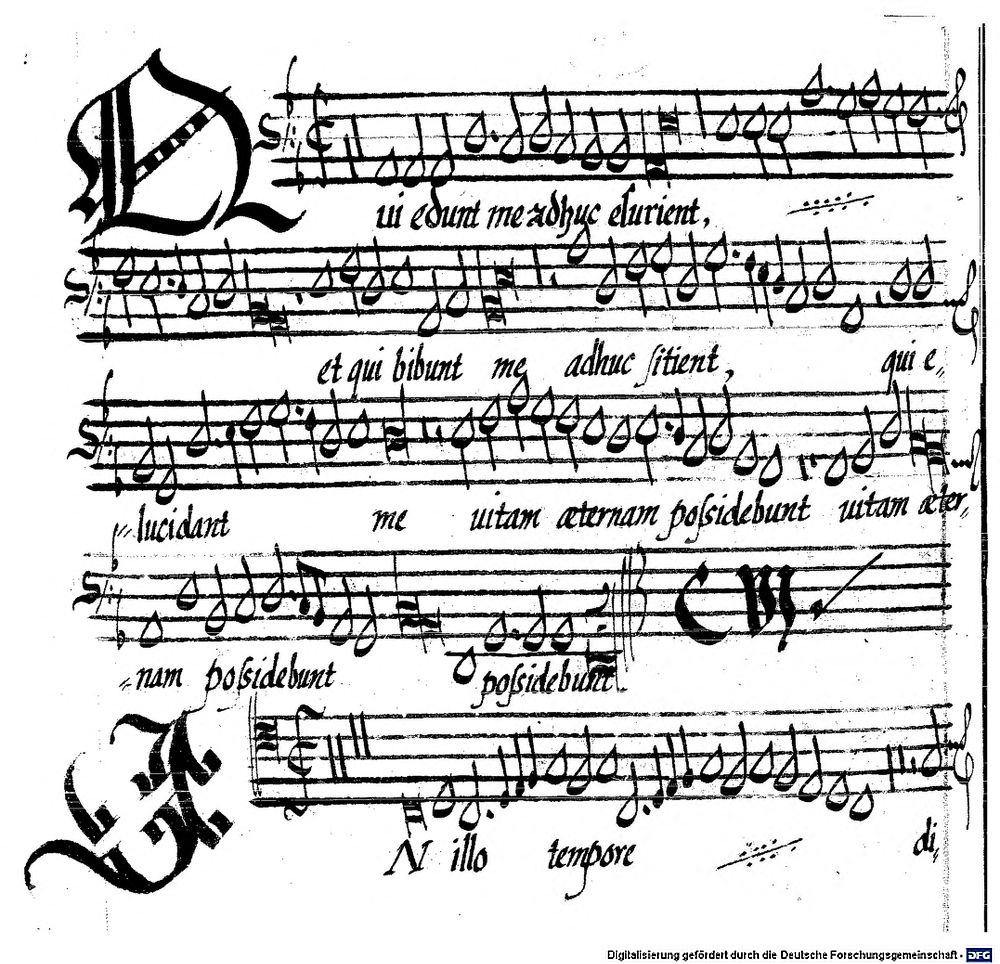 Qui edunt me adhuc esurient,
et qui bibunt me adhuc ſitient, qui e„
„lucidant me uitam æternam poſsidebunt uitam æter„
„nam poſsidebunt poſsidebunt.
IN illo tempore di„
Digitalisierung gefördert durch die Deutsche Forschungsgemeinschaft - DFG